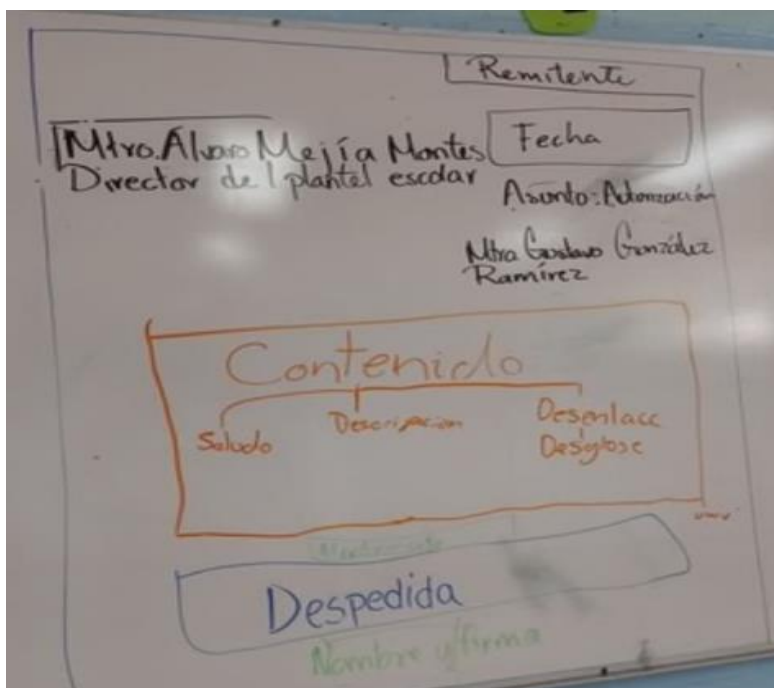 Remitente
Mtro. Álvaro Mejía Montes
Director del plantel escolar
Fecha
Asunto: Autorización
Mtro Gustavo González
Ramírez
Contenido
Saludo
Descripción
Desenlace
Desglose
Despedida
Nombre y firma